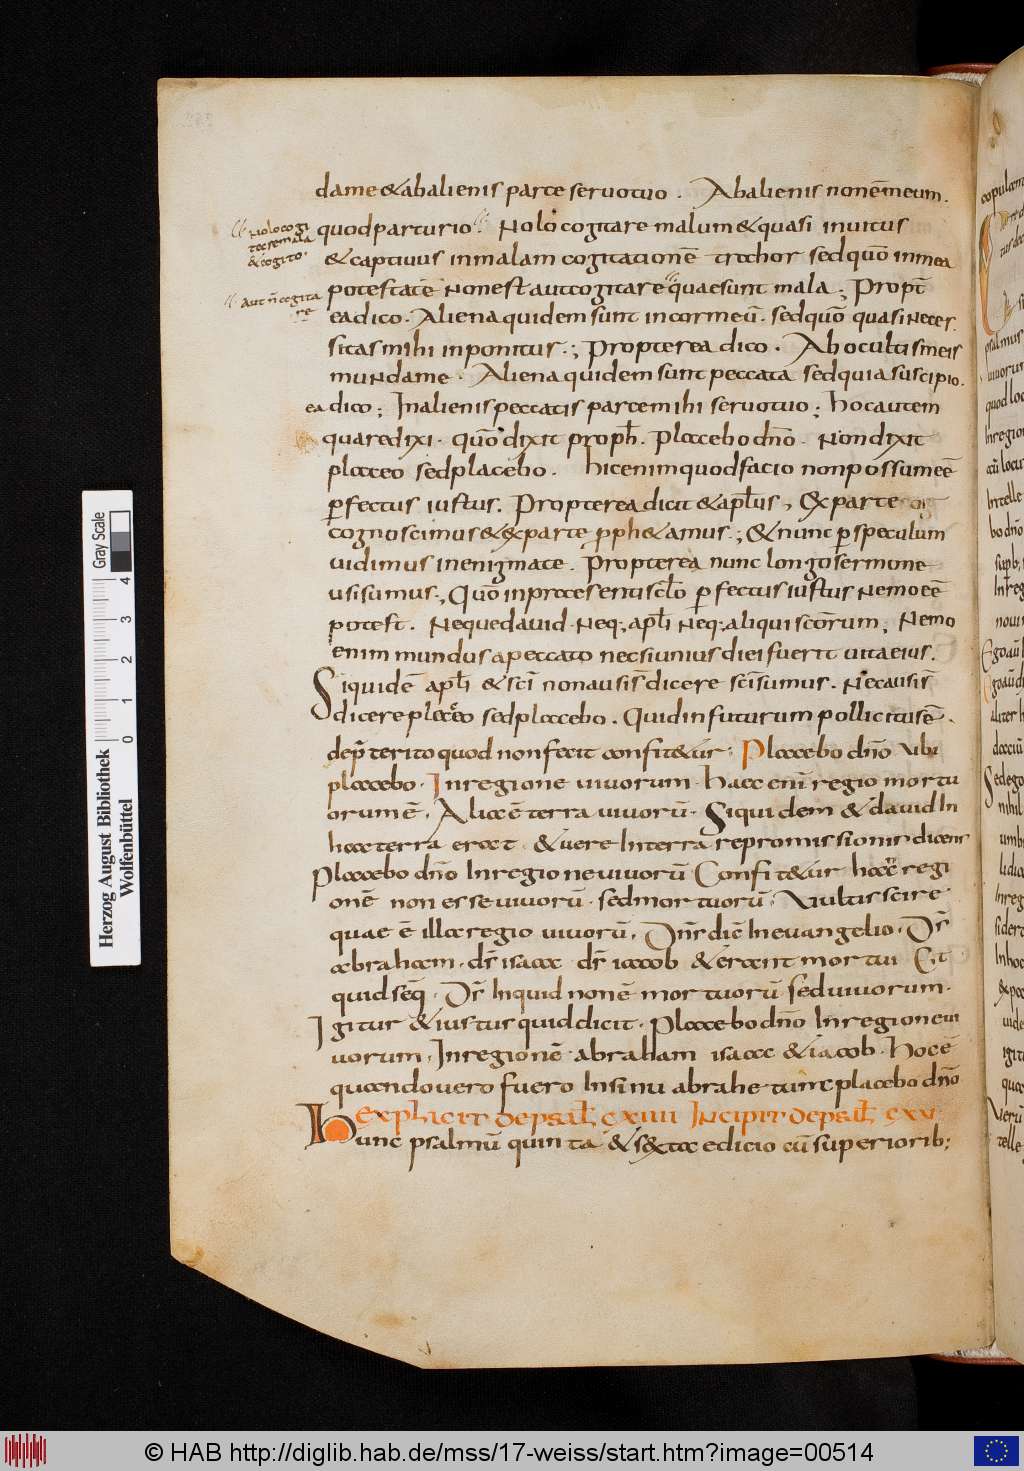 dame & abalienis parte seruotuo . Abalienis nonēmeum .
quodparturio . Nolo cogitare malum & quasi inuitus
Nolo cogi
tare mala
& cogito .
& captiuus inmalam cogitationē trahor sed quō inmea
potestatē Non est aut cogitare quae sunt mala ; Propt̄
Aut n̄ cogita
re
ea dico . Aliena quidem sunt incormeū . sed quō quasi Neces
sitas mihi inponitur . ; Propterea dico . Ab ocultis meis
mundame . Aliena quidem sunt peccata sed quia suscipio .
ea dico ; Inalienis peccatis partemihi seruotuo ; hoc autem
quare dixi . quō dixit proph̄ . Placebo dn̄o . Non dixit
placeo sed placebo . hic enim quod facio non possum eē
perfectus iustus . Propterea dicit & ap̄lus , Ex parte
cognoscimus & ex parte pph&amus . ; & nunc p speculum
uidimus in enigmate . Propterea nunc longo sermone
usi sumus . , Quō in praesenti sc̄lo perfectus iustus Nemo eē
potest . Neque dauid . Neq ; , apl̄i Neq ; , aliqui scōrum ; Nemo
enim mundus apeccato nec si unius diei fuerit uita eius .
Siquidē apl̄i & sc̄i non ausi s̄ dicere sc̄i sumus . Nec ausi s̄
dicere placeo sed placebo . Quid in futurum pollicitus ē .
dep̄terito quod non fecit confit&ur ; Placebo dn̄o Ubi
placebo . In regione uiuorum . haec eni regio mortu
orum ē . Alia ē terra uiuorū . Siquidem & dauid In
hac terra erat . & uere In terra repromissionis dicens
Placebo dn̄o In regione uiuorū Confit&ur hanc regi
onē non esse uiuorū . sed mortuorū . Uultis scire
quae ē illa regio uiuorū . Dn̄s dic̄ In euangelio . Ds̄
abraham . ds̄ isaac ds̄ iacob & erant mortui Et
quid seq̄ . Ds̄ Inquid non ē mortuorū sed uiuorum .
Igitur & iustus quid dicit . Placebo dn̄o In regione ui
uorum . In regionē abraham isaac & iacob . Hoc ē
quando uero fuero In sinu abrahe tunc placebo dn̄o
Explicit de psal̄ cxiiii Incipit de psal̄ cxv
Hunc psalmū quinta & s&xta edicio cū superiorib ;
Gray Scale
0 1 2 3 4
Herzog August Bibliothek
Wolfenbüttel
© HAB http://diglib.hab.de/mss/17-weiss/start.htm?image=00514